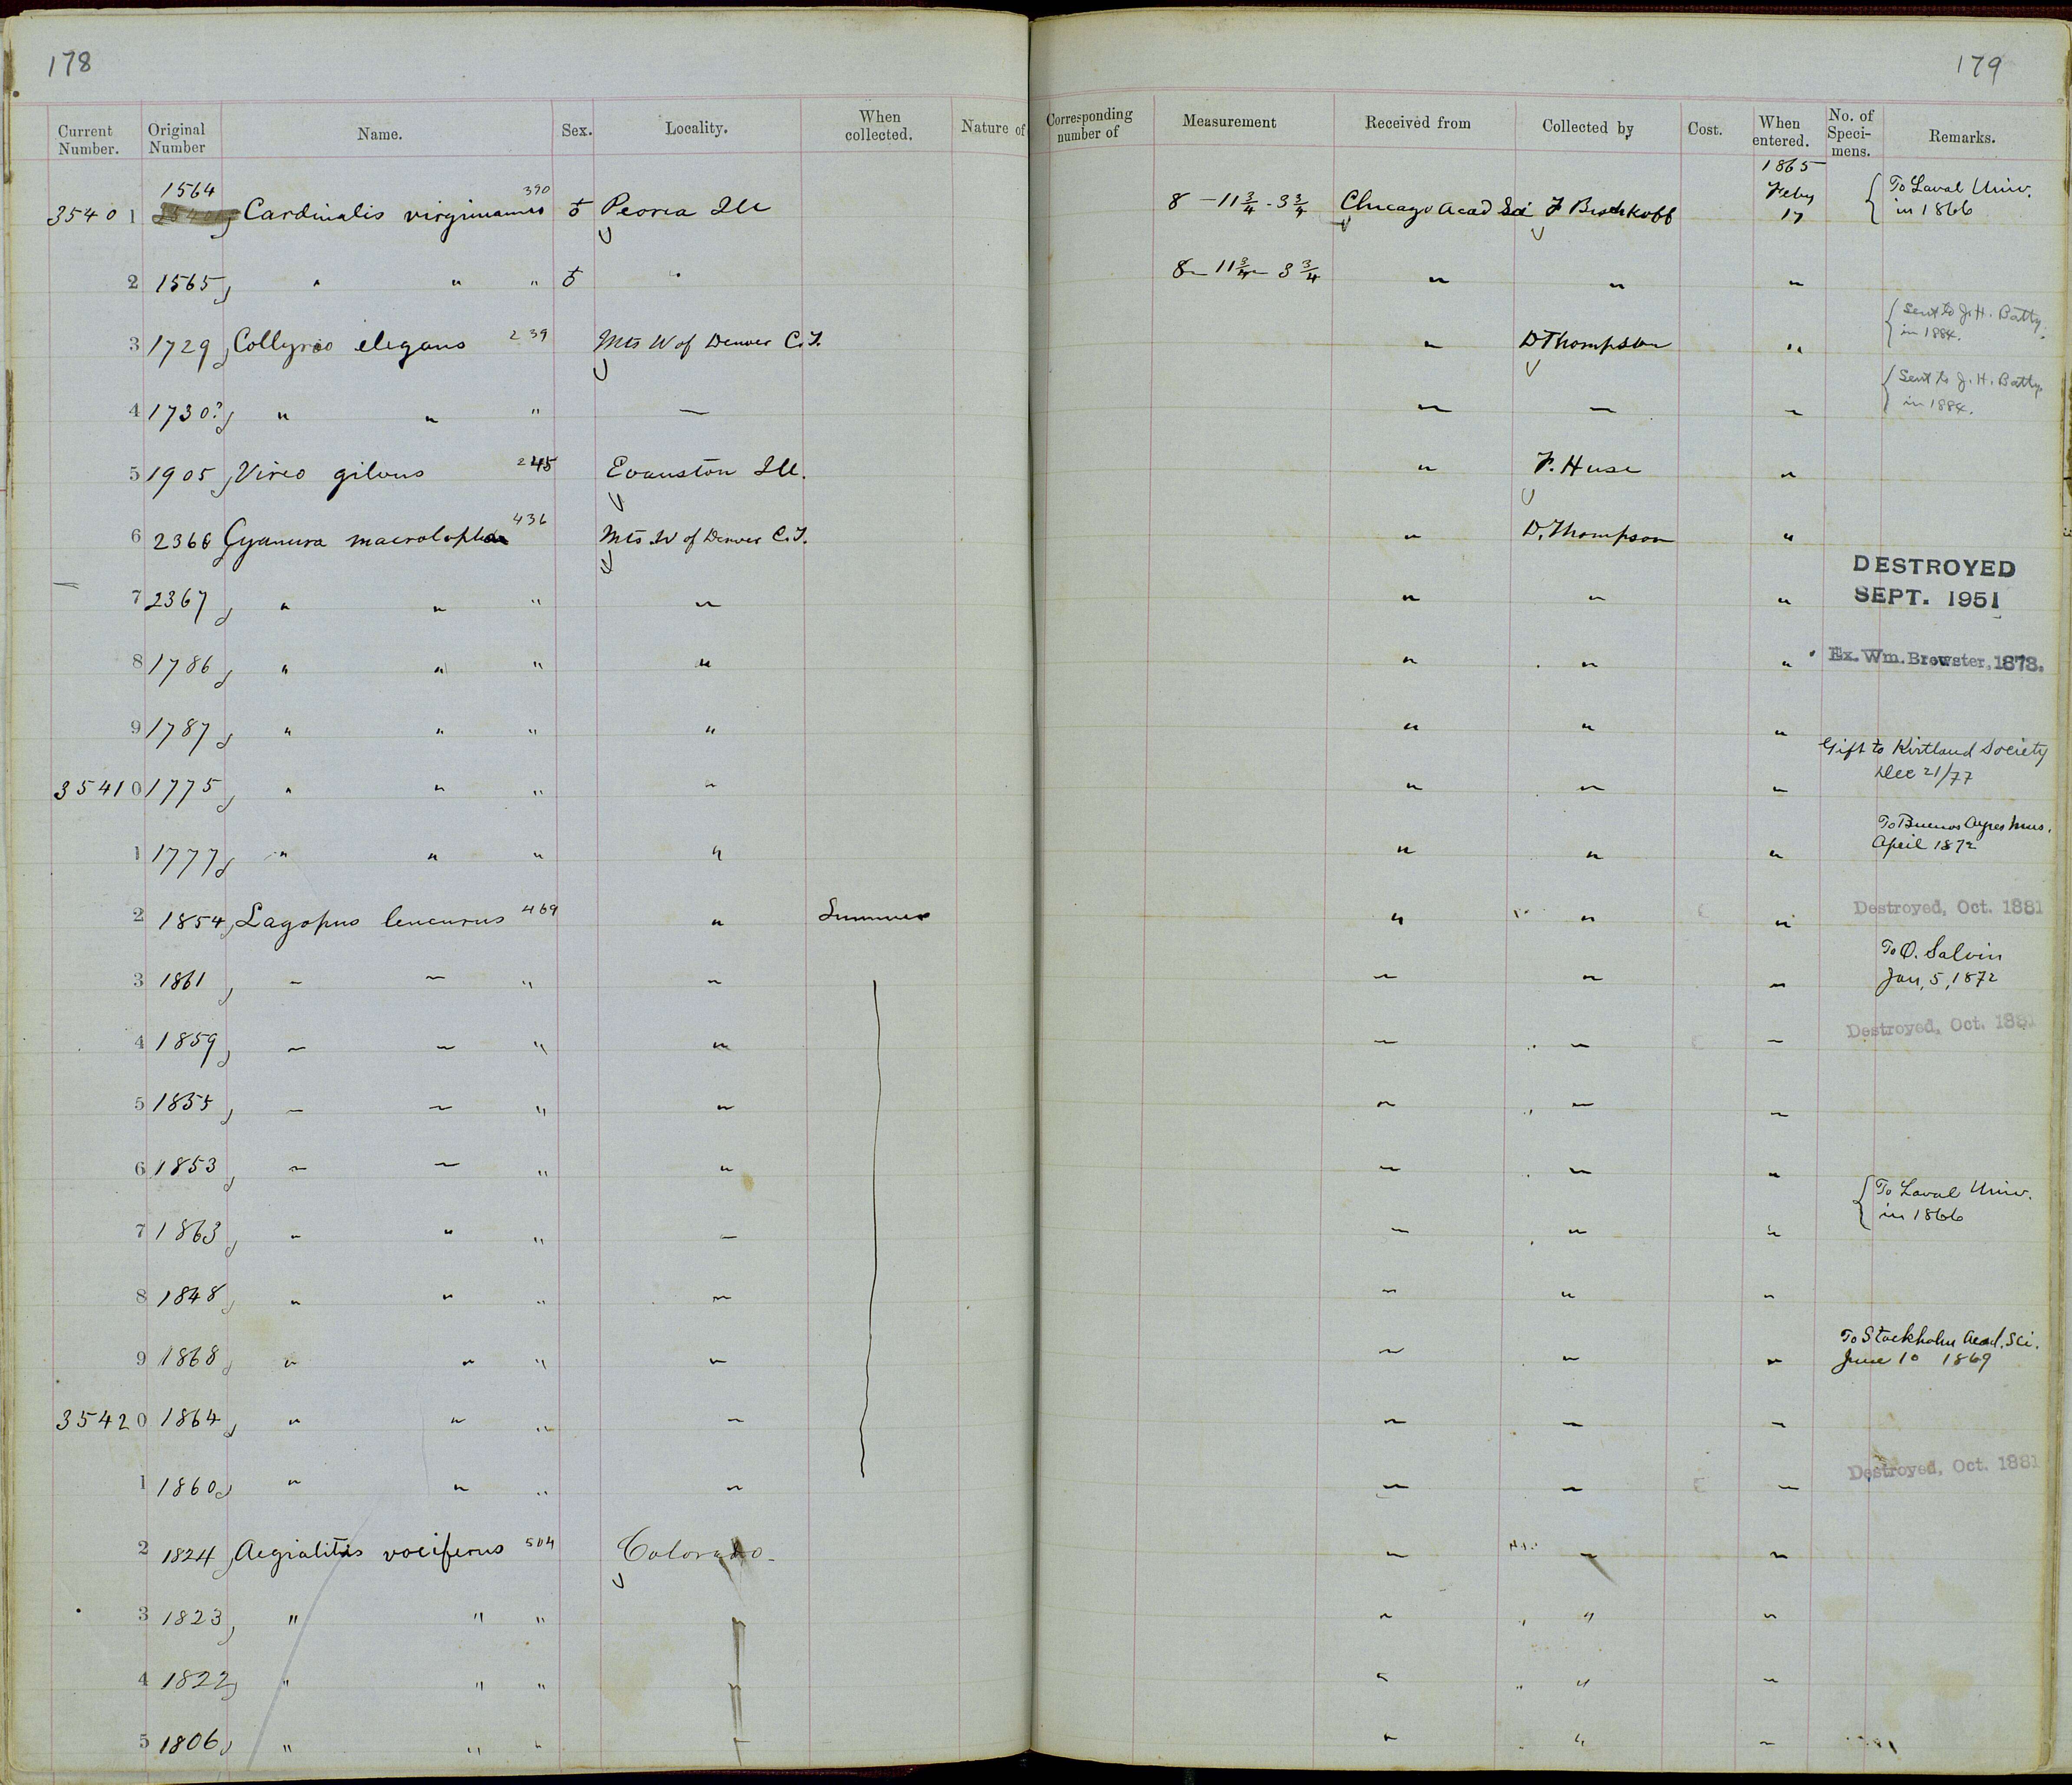 178
179
Current Number. Original Number Name. Sex. Locality. When collected. Nature of Corresponding number of Measurement Received from Collected by Cost. When entered. No. of Speci-mens. Remarks.
1865
35401 1564 Cardinalis virginianus 390 ♂ Peoria Ill 8 - 11 3/4 - 3 3/4 Chicago Acad Sci Feby 17 { To Laval Univ. in 1866
2 1565 " " " ♂ " 8 - 11 3/4 - 3 3/4 " " "
3 1729 Collyrio elegans 239 Mts W of Denver C.T. " D Thompson " { Sent to J. H. Batty. in 1884.
4 1730? " " " " " " " { Sent to J. H. Batty. in 1884.
5 1905 Vireo gilvus 245 Evanston Ill. " F. Huse "
6 2366 Cyanura macrolopha 436 Mts. W of Denver C.T. " D. Thompson "
7 2367 " " " " " " " DESTROYED SEPT. 1951
8 1786 " " " " " " " Ex. Wm. Brewster, 1878.
9 1787 " " " " " " "
35410 1775 " " " " " " " Gift to Kirtland Society Dec 21/77
1 1777 " " " " " " " To Buenos Ayres Mus. April 1872
2 1854 Lagopus leucurus 469 " Summer " " " Destroyed, Oct. 1881
3 1861 " " " " " " " To O. Salvin Jan, 5, 1872
4 1859 " " " " " " " Destroyed, Oct. 1881
5 1855 " " " " " " "
6 1853 " " " " " " "
7 1863 " " " " " " " { To Laval Univ. in 1866
8 1848 " " " " " " "
9 1868 " " " " " " " To Stockholm Acad. Sci. June 10 1869
35420 1864 " " " " " " "
1 1860 " " " " " " " Destroyed, Oct. 1881
2 1824 Aegialitis vociferus 504 Colorado - " " "
3 1823 " " " " " " "
4 1822 " " " " " " "
5 1806 " " " " " " "